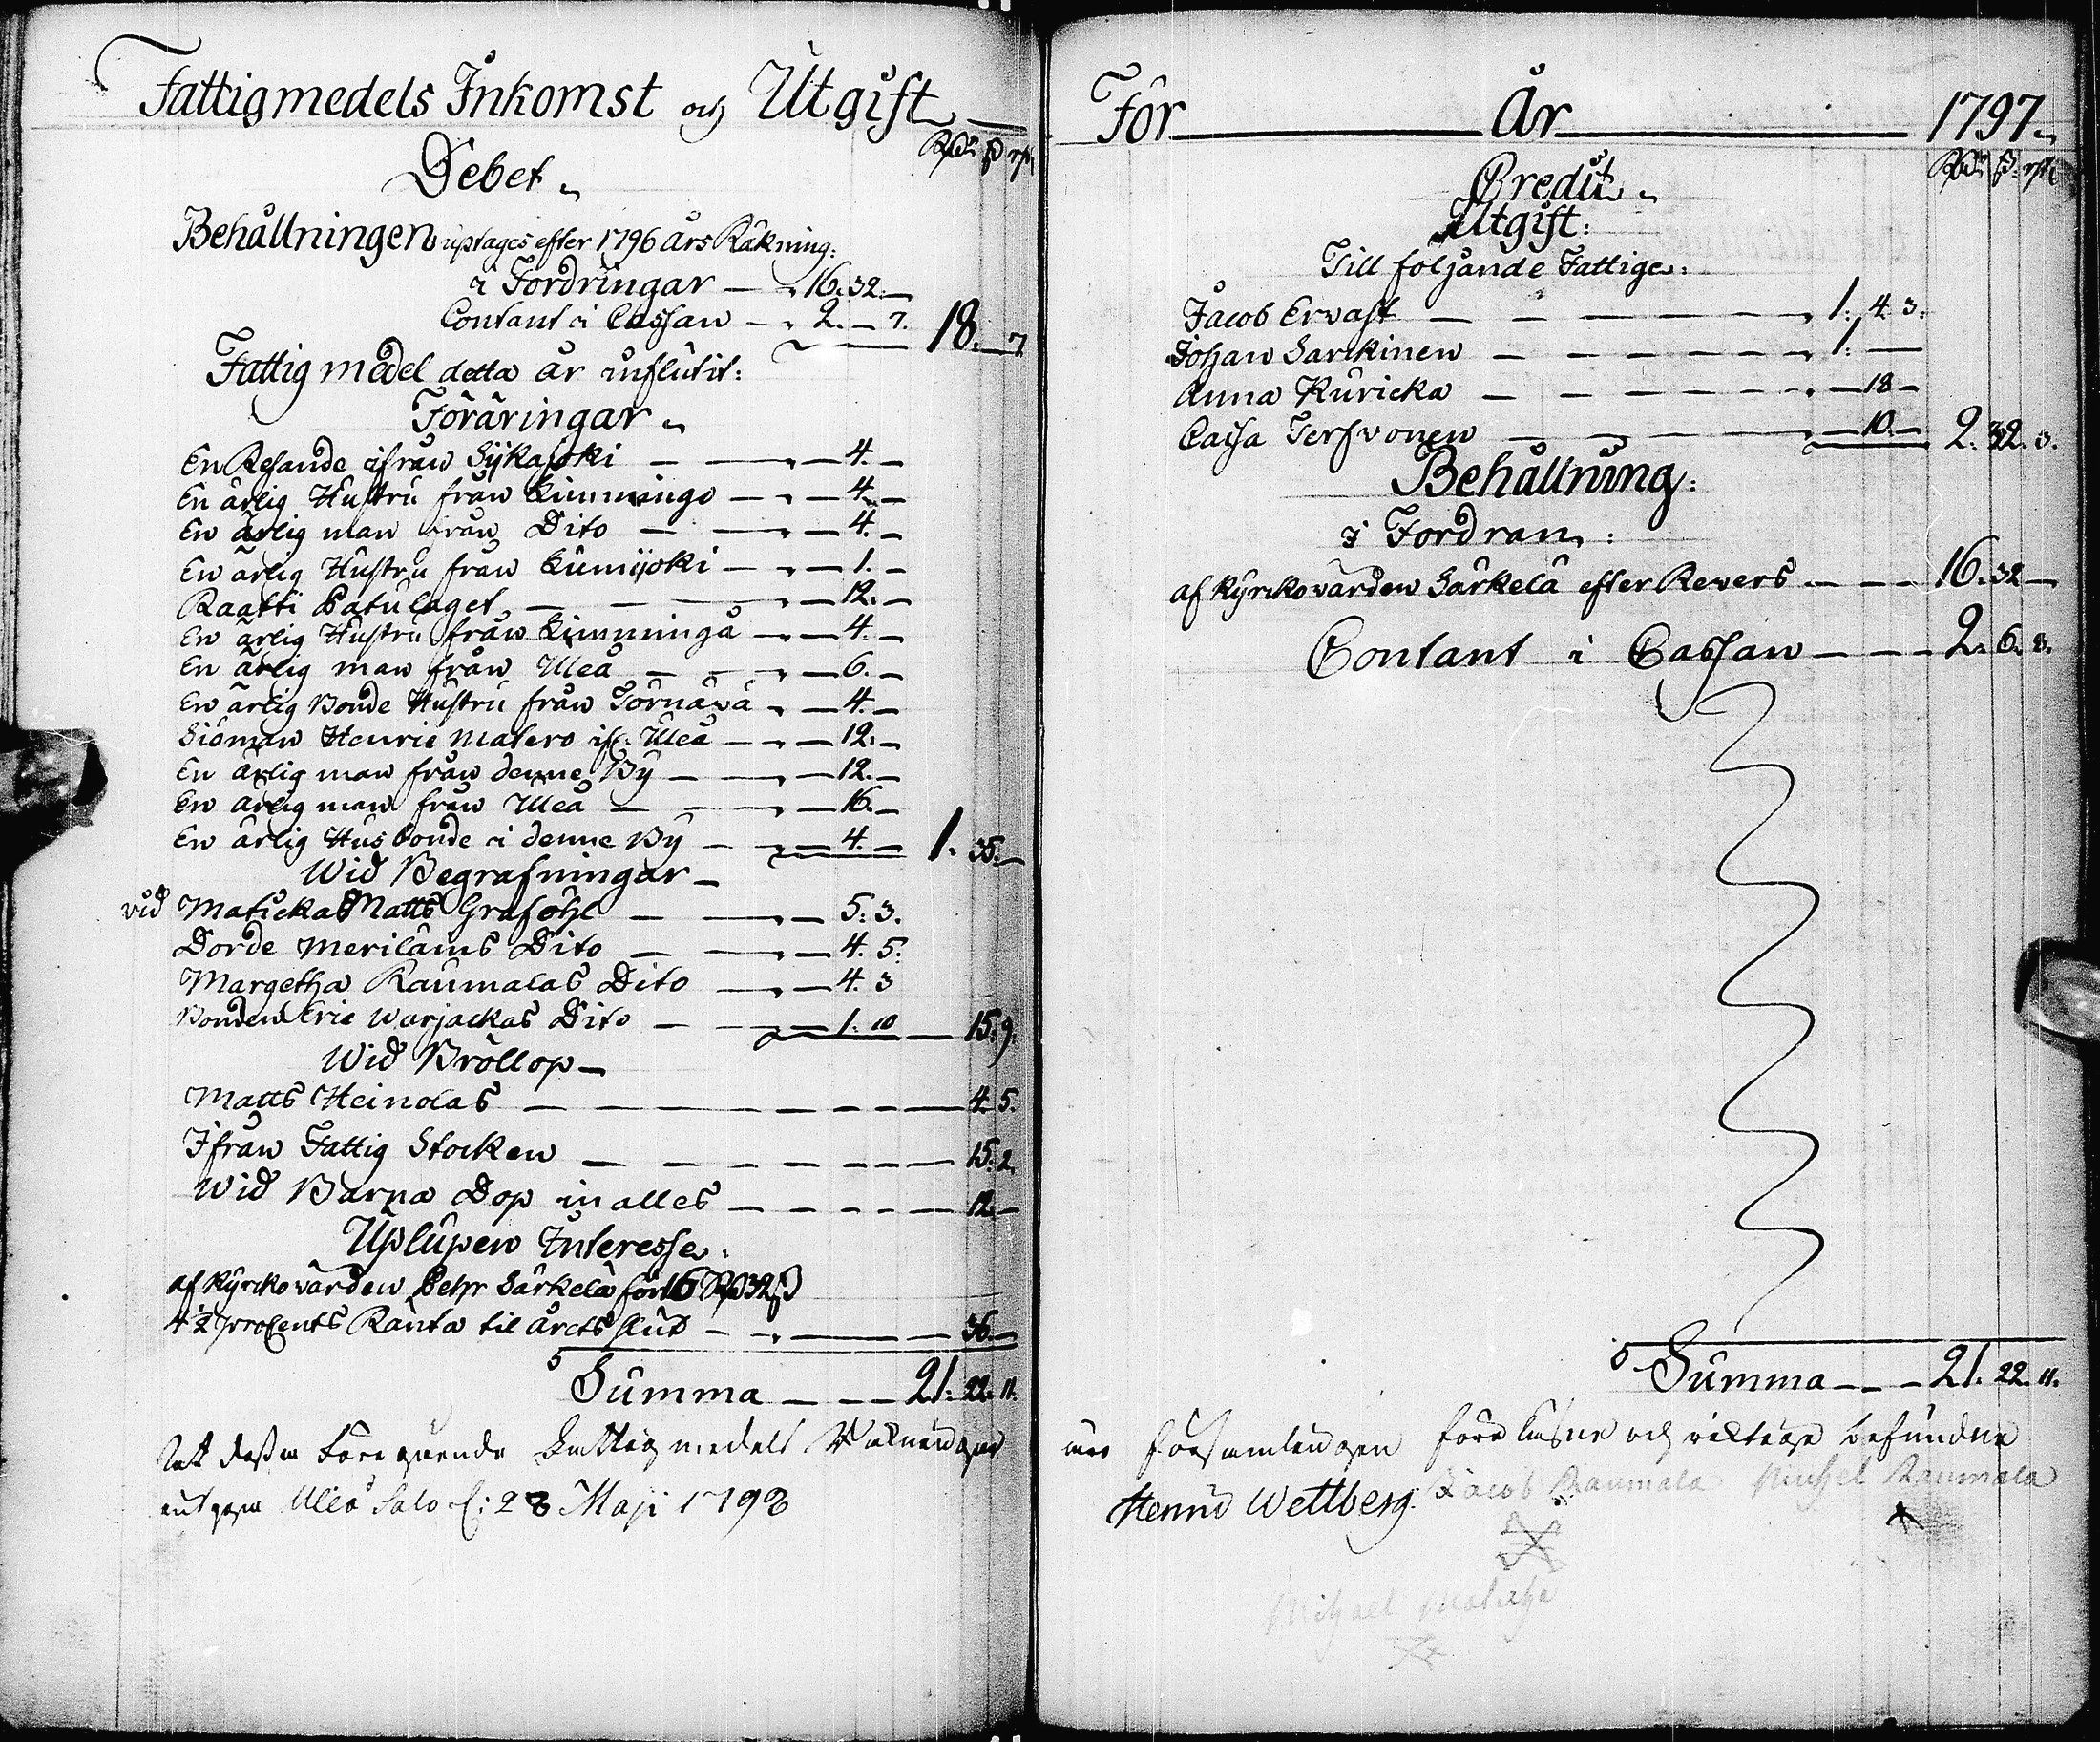 Fattigmedels Inkomst och Utgift
Rdr ß rst
Debet
Behållningen uptages efter 1796 års Räkning:
i Fordringar — 16. 32. —
Contant i Cassan — 2. — 7. 18. — 7
Fattig medel detta år influtit:
Föräringar
En Resande ifrån Sijkajoki — 4. —
En ärlig Hustru från Kimmingo — 4. —
En ärlig man ifrån Dito — 4. —
En ärlig Hustru från Kimijoki — 1. —
Raatti Båtulaget — 12. —
En ärlig Hustru från Kimmingå — 4. —
En ärlig man från Uleå — 6. —
En ärlig Bonde Hustru från Törnävä — 4. —
Siöman Henric Matero ifr. Uleå — 12. —
En ärlig man från denne By — 12. —
En ärlig man från Uleå — 16. —
En ärlig Husbonde i denne By — 4. — 1. 35. —
Wid Begrafningar —
vid Matickas Matts Graföhl — 5. 3.
Dorde Meriläins Dito — 4. 5.
Margetha Raumalas Dito — 4. 3
Bonden Eric Warjackas Dito — 1. 10 — 15. 9.
Wid Bröllop —
Matts Heinolas — 4. 5.
Ifrån Fattig Stocken — 15. 2.
Wid Barna Dop in alles — 12. —
Uplupen Interesse.
af Kyrckovärden Pehr Särkelä för 16 Rd 32 ß
4½ procents Ränta til årets slut — 36. —
Summa — 21. 22. 11.
Att dessa föregående Fattigmedels Räkningar
utgen Uleå Salo d: 28 Maji 1798
För År 1797
Rdr ß rst
Credit
Utgift:
Till följande Fattige:
Jacob Ervast — 1. 4. 3.
Johan Sarckinen — 1. —
Anna Kuricka — 18 —
Caisa Terfvonen — 10. — 2. 32. 3.
Behållning:
i Fordran:
af Kyrckovärden Särkelä efter Revers — 16. 32 —
Contant i Cassan — 2. 6. 8.
Summa — 21. 22. 11.
församlingen föreläsne och riktige befundne
Henric Wettberg. Jacob Raumala Michel Raumala
Michael Maticka